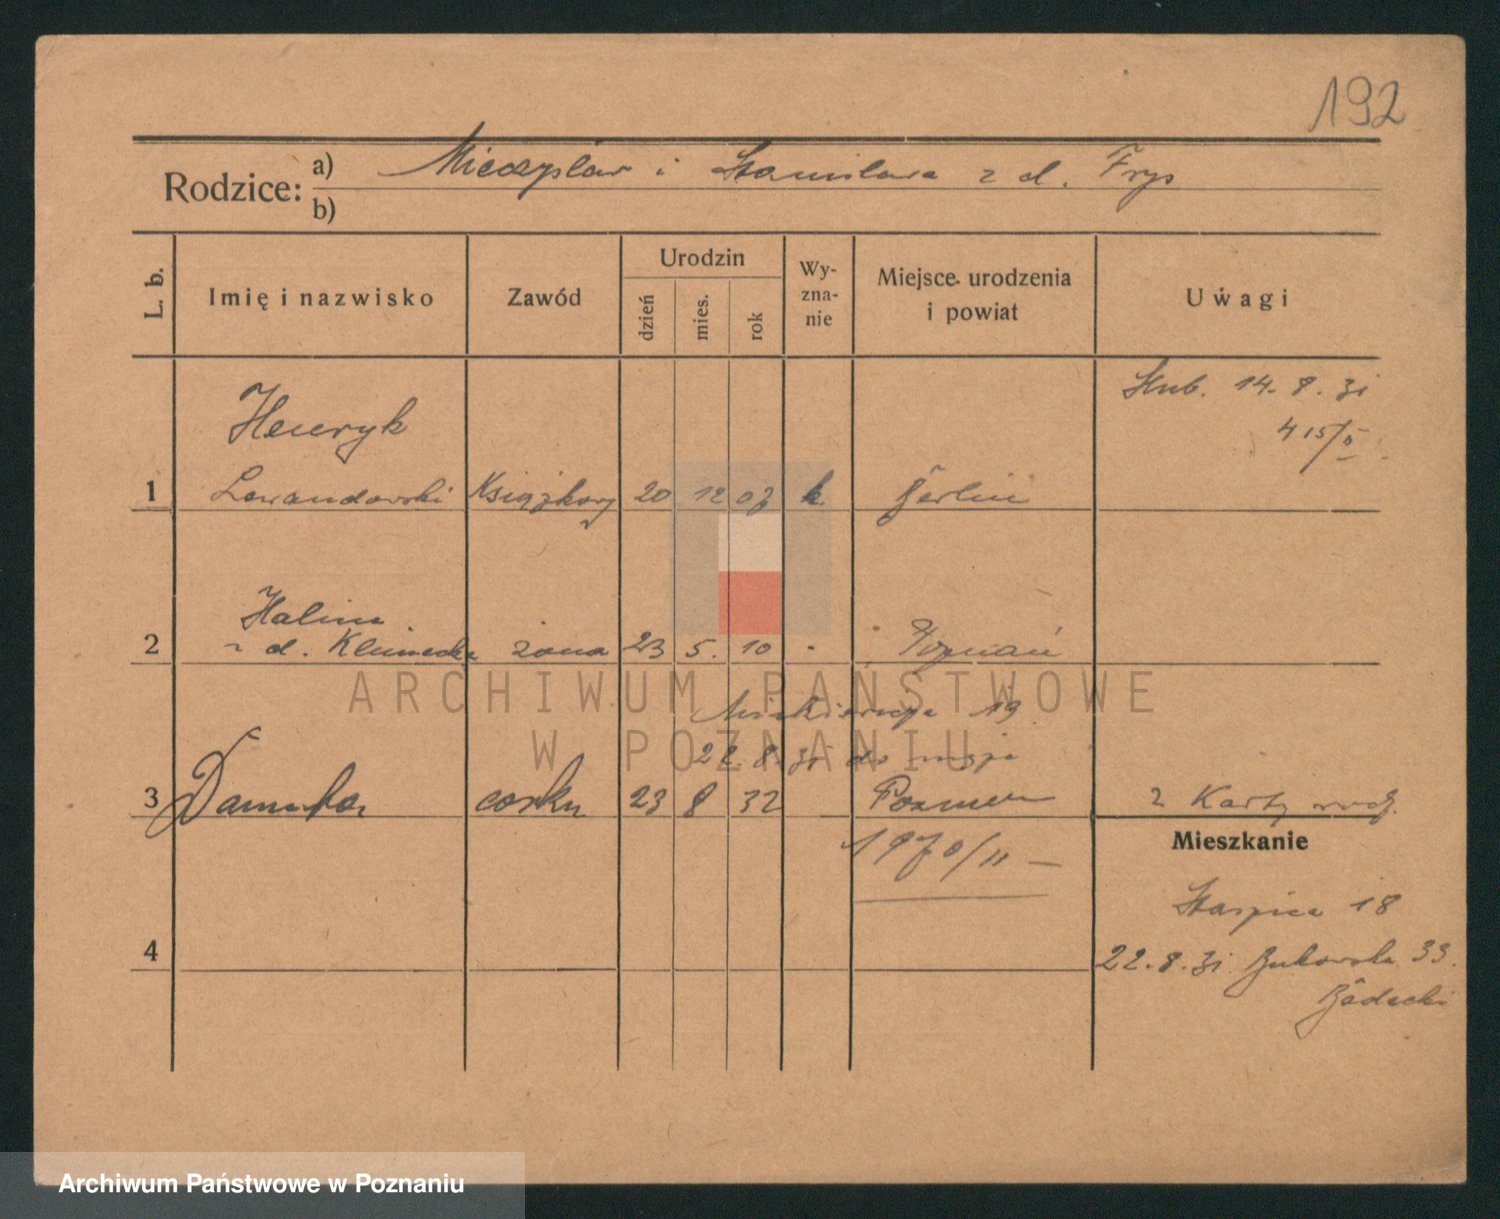 192
Rodzice: a) Mieczysław i Stanisława z d. Frys
b)
L. b.
Imię i nazwisko
Zawód
Urodzin
dzień
mies.
rok
Wy-
zna-
nie
Miejsce urodzenia
i powiat
Uwagi
Ślub. 14. 8. 31
415/II
Henryk
1 Lewandowski Książkowy 20 12 07 k. Berlin
Halina
2 z d. Klimecka żona 23 5. 10 Poznań
19
22. 8. 31 do męża
3 Danuta córka 23 8 32 Poznań z Karty
1970/II —
Mieszkanie
Staszica 18
4
22. 8. 31 Bukowska 33.
ARCHIWUM PAŃSTWOWE
W POZNANIU
Archiwum Państwowe w Poznaniu